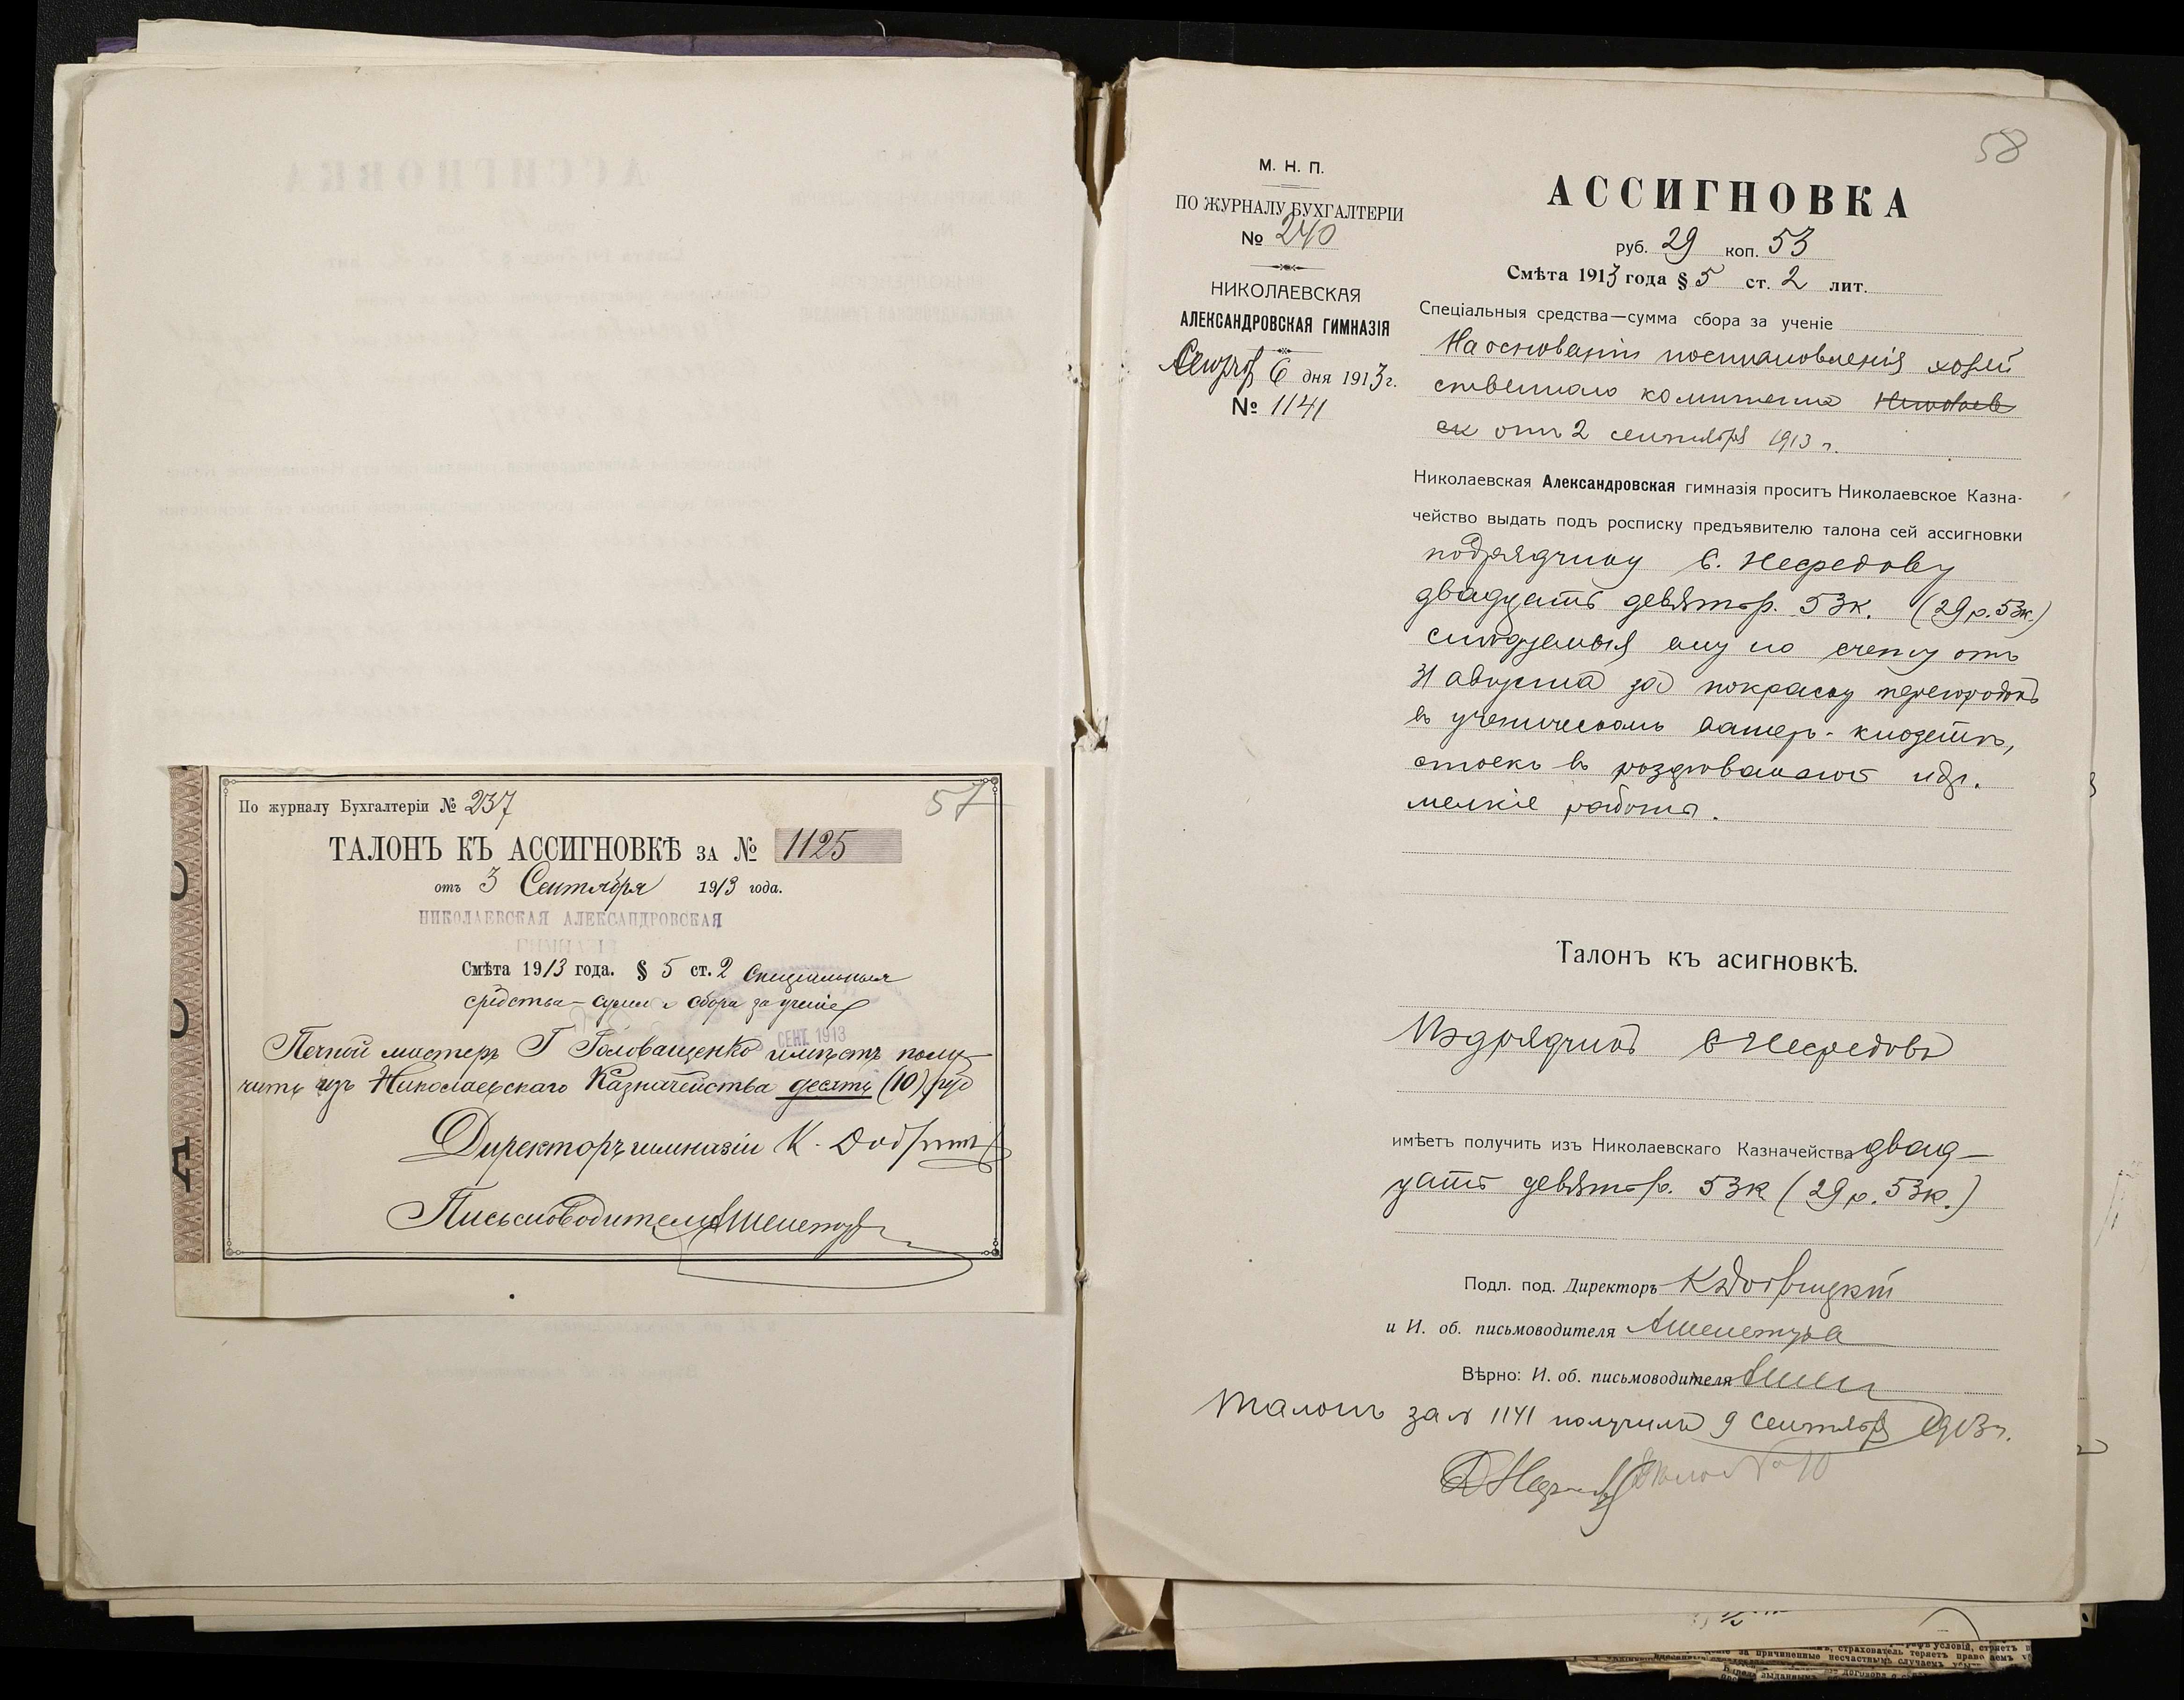 По журналу Бухгалтеріи № 237
57
ТАЛОНЪ КЪ АССИГНОВКѢ ЗА № 1125
отъ 3 Сентября 1913 года.
НИКОЛАЕВСКАЯ АЛЕКСАНДРОВСКАЯ
ГИМНАЗІЯ
Смѣта 1913 года. § 5 ст. 2 Спеціальныя
средства – сумма сбора за ученіе
СЕНТ. 1913
Печной мастеръ Г Головащенко имѣетъ полу-
чить изъ Николаевскаго Казначейства десять (10) руб
Директоръ гимназіи К.
Письмоводитель
58
М. Н. П.
ПО ЖУРНАЛУ БУХГАЛТЕРІИ
№ 240
НИКОЛАЕВСКАЯ
АЛЕКСАНДРОВСКАЯ ГИМНАЗІЯ
Сентяб 6 дня 1913 г.
№ 1141
АССИГНОВКА
руб. 29 коп. 53
Смѣта 1913 года § 5 ст. 2 лит.
Спеціальныя средства—сумма сбора за ученіе
На основаніи постановленія хозяй
ственнаго комитета Николаев
ск отъ 2 сентября 1913 г.
Николаевская Александровская гимназія проситъ Николаевское Казна-
чейство выдать подъ росписку предъявителю талона сей ассигновки
подрядчику С. Нефедову
двадцать девять р. 53к. (29 р. 53к.)
слѣдуемыя ему по счету отъ
31 августа за покраску перегородокъ
въ ученическомъ ватеръ-клозетѣ,
стоекъ въ раздѣвальнѣ и др.
мелкіе работы.
Талонъ къ асигновкѣ.
Подрядчикъ С Нефедовъ
имѣетъ получить изъ Николаевскаго Казначейства двад-
цать девять р. 53к (29 р. 53к.)
Подл. под. Директоръ
и И. об. письмоводителя
Вѣрно: И. об. письмоводителя
Талонъ за № 1141 получилъ 9 Сентября 1913 г.